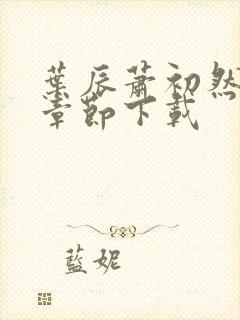 葉辰蕭初然
章節下載
藍妮